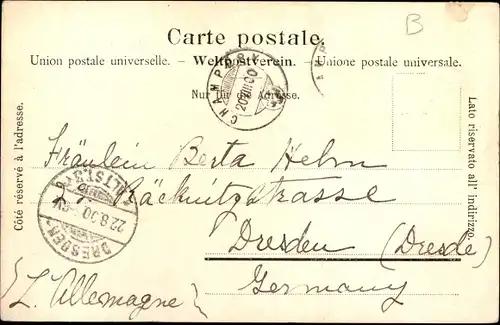 B
Carte postale.
Union postale universelle. – Weltpostverein. – Unione postale universale.
Nur für die Adresse.
Côté réservé à l'adresse.
Lato riservato all' indirizzo.
CHAMPÉRY
20.VIII.00
Fräulein Berta
Räcknitzstrasse
Dresden (Dresde)
Germany
(L'Allemagne)
DRESDEN ALTST.
22.8.00